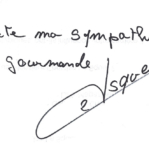 te ma sympath
gourmande